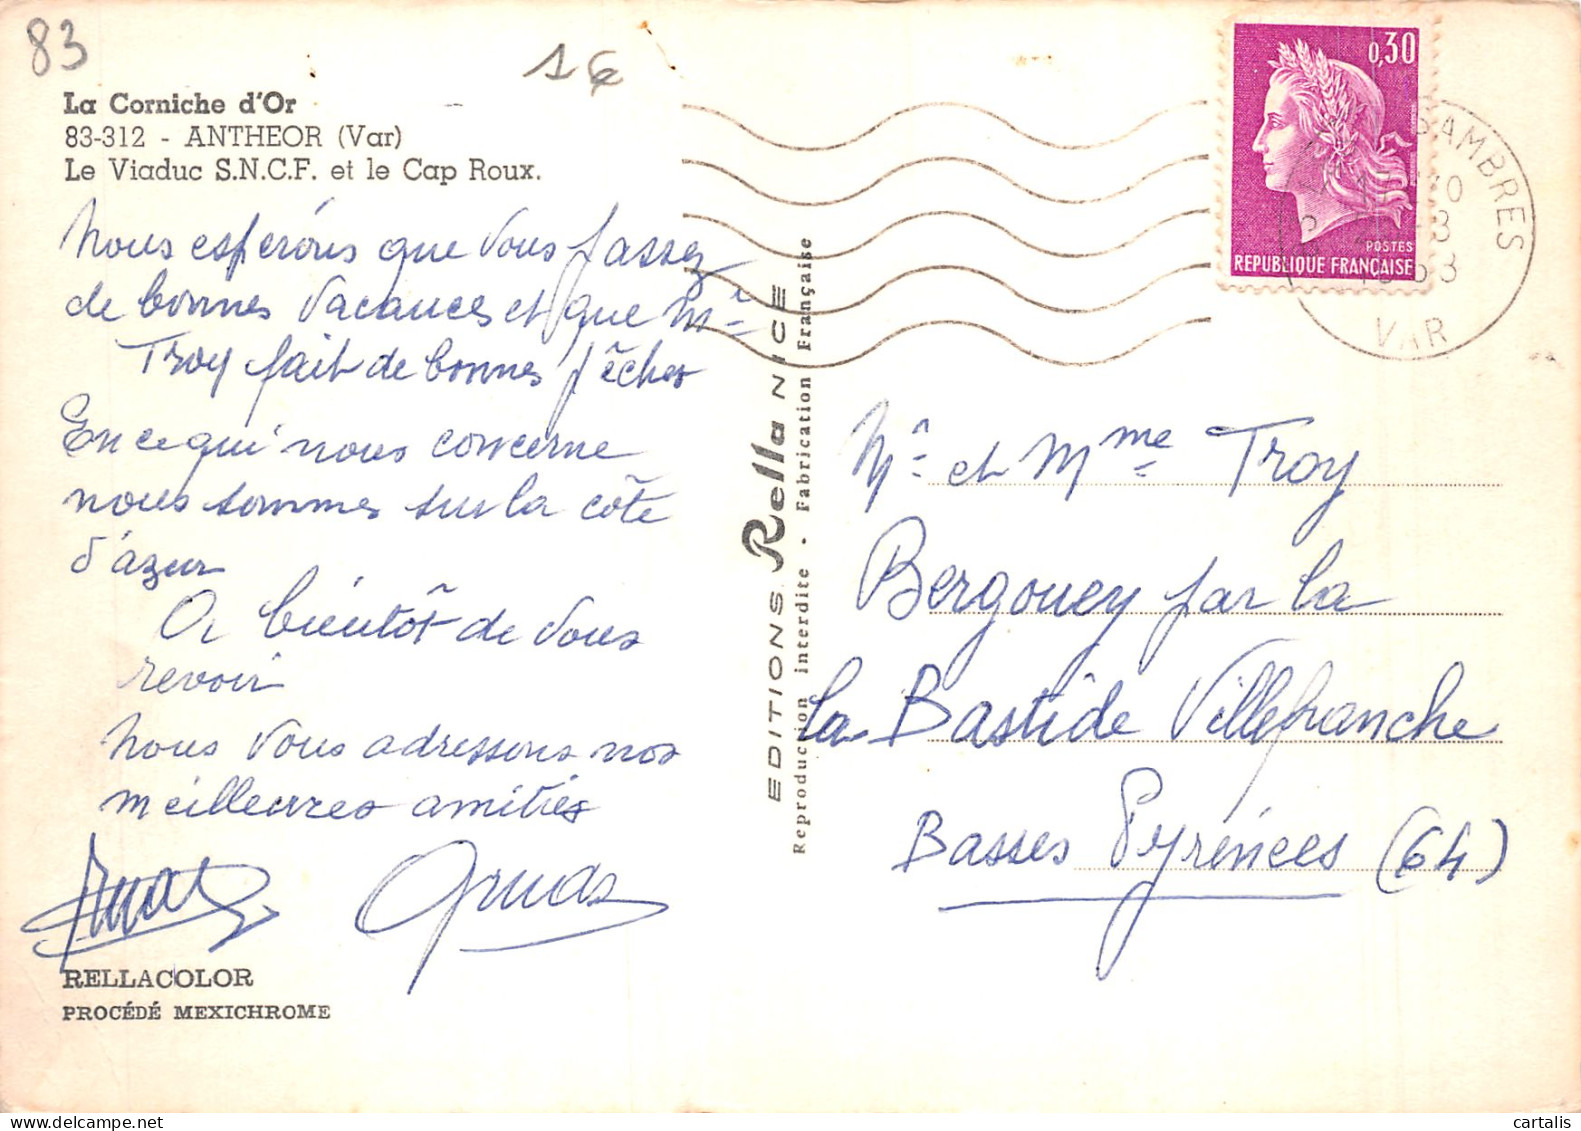 83
1€
La Corniche d'Or
83-312 - ANTHEOR (Var)
Le Viaduc S.N.C.F. et le Cap Roux.
Nous espérons que vous passez
de bonnes vacances et que Mr
Troy fait de bonnes pêches
En ce qui nous concerne
nous sommes sur la côte
d'azur
A bientôt de vous
revoir
Nous vous adressons nos
meilleures amitiés
RELLACOLOR
PROCÉDÉ MEXICHROME
EDITIONS Rella NICE
Reproduction interdite - Fabrication Française
0,30
POSTES
REPUBLIQUE FRANÇAISE
SAMBRES
VAR
Mr et Mme Troy
Bergouey par la
la Bastide Villefranche
Basses Pyrénées (64)
cartalis